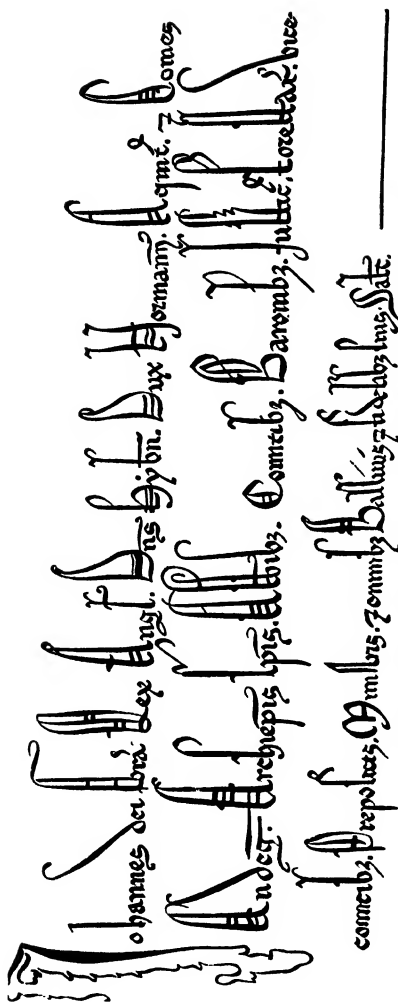 Johannes dei grã Rex Angl. Dñs Hybn. Dux Normann̄. Aqmt̃. ⁊ Comes
Andeg̃. Archiepis Epis. Abbibꝫ. Comitibꝫ. Baronibꝫ. Justic̃. Forestar̃. vice-
comitibꝫ. Prepositis. Ministris. ⁊ omnibꝫ Ballivis ⁊ fidelibꝫ suis. Salt̃.